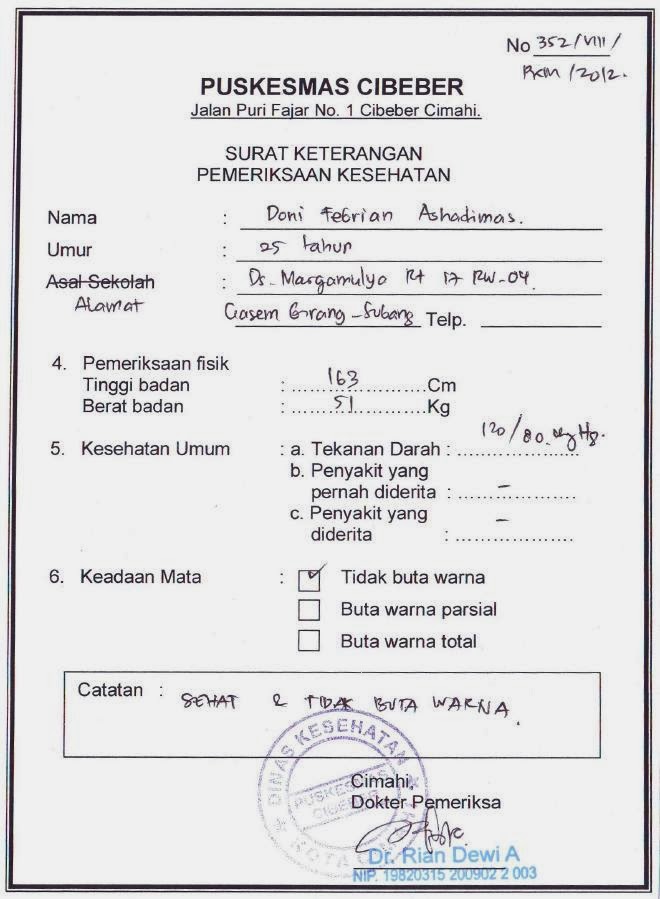 No 352/VIII/
PKM/2012.
PUSKESMAS CIBEBER
Jalan Puri Fajar No. 1 Cibeber Cimahi.
SURAT KETERANGAN
PEMERIKSAAN KESEHATAN
Nama : Doni Febrian Ashadimas.
Umur : 25 tahun
Asal Sekolah : Ds. Margamulyo Rt 17 RW-04
Alamat Girang-Subang Telp.
4. Pemeriksaan fisik
Tinggi badan : 163 Cm
Berat badan : 51 Kg
5. Kesehatan Umum : a. Tekanan Darah : 120/80 mmHg.
b. Penyakit yang
pernah diderita : -
c. Penyakit yang
diderita : -
6. Keadaan Mata : ✓ Tidak buta warna
Buta warna parsial
Buta warna total
Catatan : SEHAT & TIDAK BUTA WARNA.
DINAS KESEHATAN
PUSKESMAS
CIBEBER
KOTA
Cimahi,
Dokter Pemeriksa
Dr. Rian Dewi A
NIP. 19820315 200902 2 003